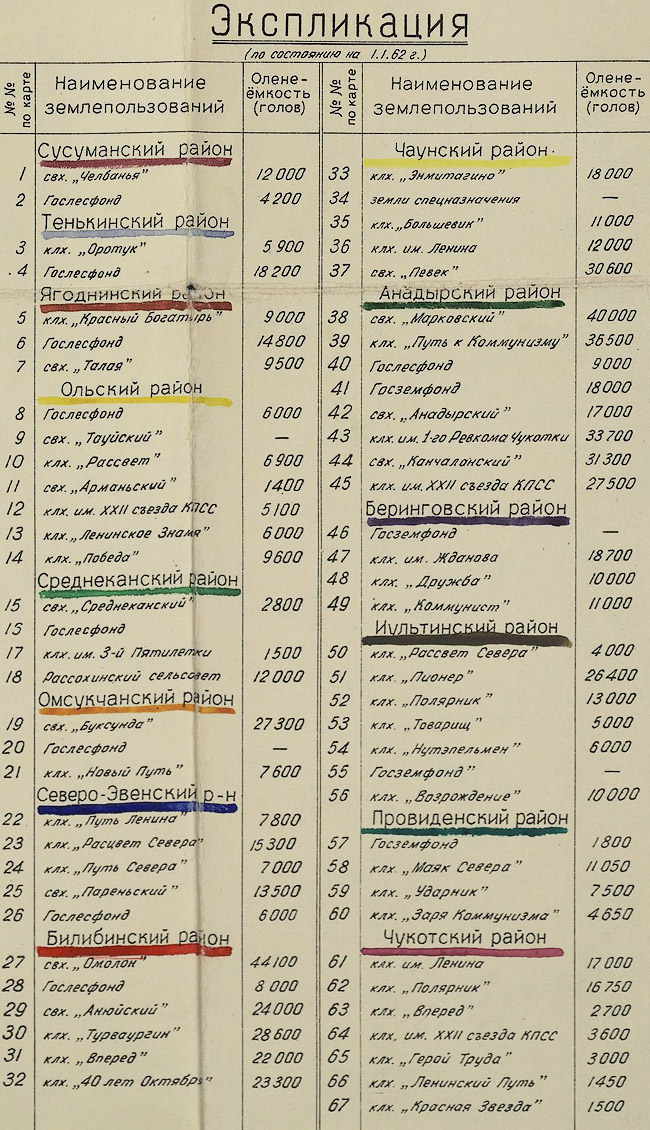 Экспликация
(по состоянию на 1.1.62 г.)
№ № по карте
Наименование землепользований
Олене-ёмкость (голов)
№ № по карте
Наименование землепользований
Олене-ёмкость (голов)
Сусуманский район
1 свх. „Челбанья" 12 000
2 Гослесфонд 4 200
Тенькинский район
3 клх. „Оротук" 5 900
4 Гослесфонд 18 200
Ягоднинский район
5 клх. „Красный Богатырь" 9 000
6 Гослесфонд 14 800
7 свх. „Талая" 9500
Ольский район
8 Гослесфонд 6000
9 свх. „Тауйский" —
10 клх. „Рассвет" 6 900
11 свх. „Арманьский" 1400
12 клх. им. XXII съезда КПСС 5100
13 клх. „Ленинское Знамя" 6 000
14 клх. „Победа" 9600
Среднеканский район
15 свх. „Среднеканский" 2800
16 Гослесфонд
17 клх. им. 3-й Пятилетки 1500
18 Рассохинский сельсовет 12 000
Омсукчанский район
19 свх. „Буксунда" 27 300
20 Гослесфонд —
21 клх. „Новый Путь" 7 600
Северо-Эвенский р-н
22 клх. „Путь Ленина" 7 800
23 клх. „Расцвет Севера" 15 300
24 клх. „Путь Севера" 7 000
25 свх. „Пареньский" 13 500
26 Гослесфонд 6 000
Билибинский район
27 свх. „Омолон" 44 100
28 Гослесфонд 8 000
29 свх. „Анюйский" 24 000
30 клх. „Турваургин" 28 600
31 клх. „Вперед" 22 000
32 клх. „40 лет Октября" 23 300
Чаунский район
33 клх. „Энмитагино" 18 000
34 земли спецназначения —
35 клх. „Большевик" 11 000
36 клх. им. Ленина 12 000
37 свх. „Певек" 30 600
Анадырский район
38 свх. „Марковский" 40 000
39 клх. „Путь к Коммунизму" 36 500
40 Гослесфонд 9 000
41 Госземфонд 18 000
42 свх. „Анадырский" 17 000
43 клх. им. 1-го Ревкома Чукотки 33 700
44 свх. „Канчалонский" 31 300
45 клх. им. XXII съезда КПСС 27 500
Беринговский район
46 Госземфонд —
47 клх. им. Жданова 18 700
48 клх. „Дружба" 10 000
49 клх. „Коммунист" 11 000
Иультинский район
50 клх. „Рассвет Севера" 4 000
51 клх. „Пионер" 26 400
52 клх. „Полярник" 13 000
53 клх. „Товарищ" 5 000
54 клх. „Нутэпельмен" 6 000
55 Госземфонд" —
56 клх. „Возрождение" 10 000
Провиденский район
57 Госземфонд 1 800
58 клх. „Маяк Севера" 11 050
59 клх. „Ударник" 7 500
60 клх. „Заря Коммунизма" 4 650
Чукотский район
61 клх. им. Ленина 17 000
62 клх. „Полярник" 16 750
63 клх. „Вперед" 2 700
64 клх. им. XXII съезда КПСС 3600
65 клх. „Герой Труда" 3 000
66 клх. „Ленинский Путь" 1450
67 клх. „Красная Звезда" 1500